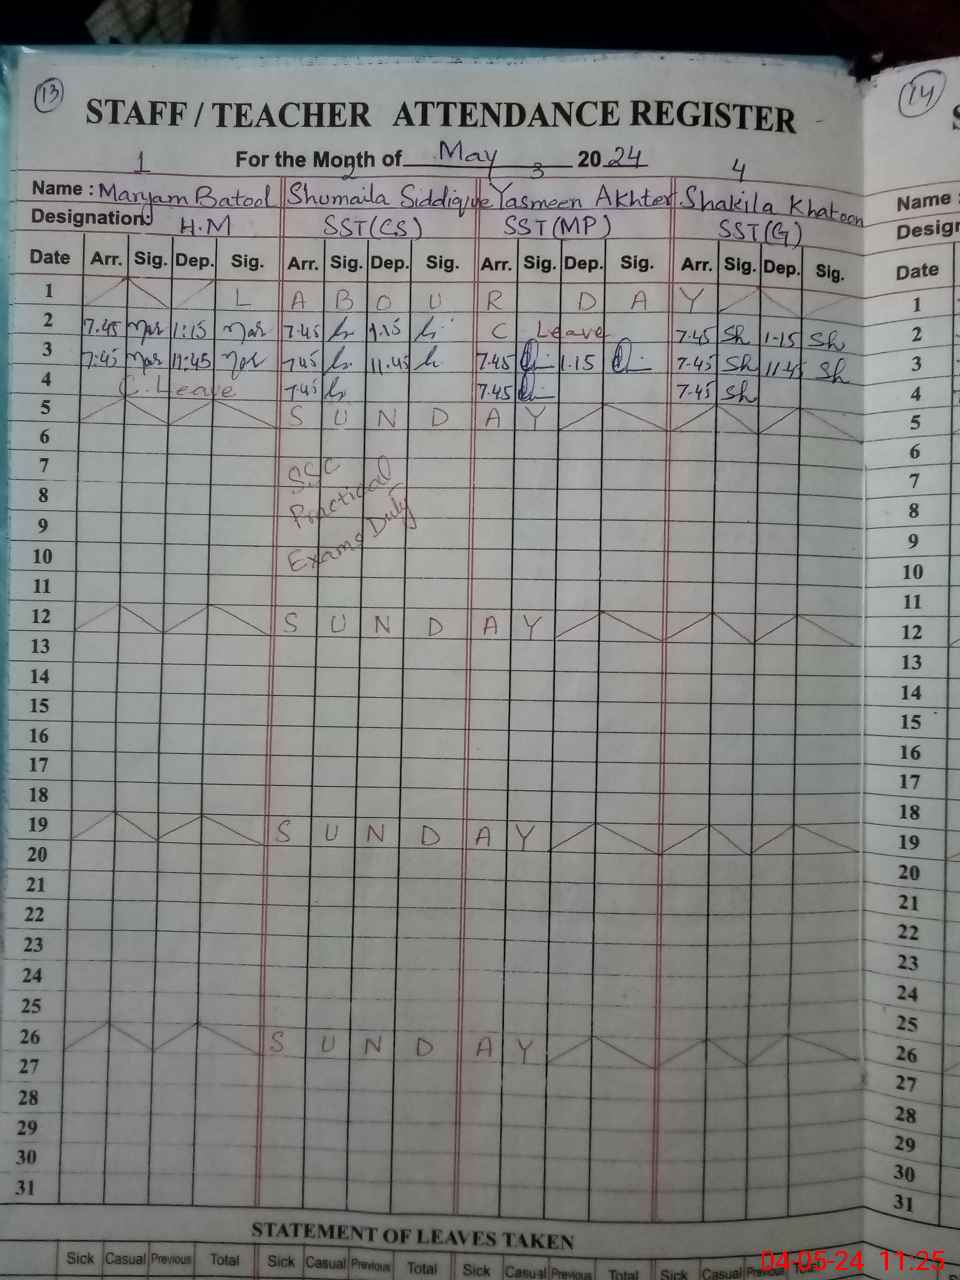 13
14
STAFF / TEACHER ATTENDANCE REGISTER
For the Month of May 2024
1 2 3 4
Name : Maryam Batool Shumaila Siddique Yasmeen Akhter Shakila Khatoon
Name :
Designation: H.M SST(CS) SST(MP) SST(G)
Date Arr. Sig. Dep. Sig. Arr. Sig. Dep. Sig. Arr. Sig. Dep. Sig. Arr. Sig. Dep. Sig.
Date
1 L A B O U R D A Y 1
2 7.45 Mar 1:15 Mar 7.45 1.15 C Leave 7.45 Sh 1-15 Sh 2
3 7:45 Mar 11:45 Mar 7.45 11.45 7.45 1.15 7.45 Sh 11.45 Sh 3
4 C. Leave 7.45 7.45 7.45 Sh 4
5 S U N D A Y 5
6 6
7 SSC 7
8 Practical 8
9 Exams Duty 9
10 10
11 11
12 S U N D A Y 12
13 13
14 14
15 15
16 16
17 17
18 18
19 S U N D A Y 19
20 20
21 21
22 22
23 23
24 24
25 25
26 S U N D A Y 26
27 27
28 28
29 29
30 30
31 31
STATEMENT OF LEAVES TAKEN
Sick Casual Previous Total Sick Casual Previous Total Sick Casual Previous Total Sick Casual Previous Total
04-05-24 11:25